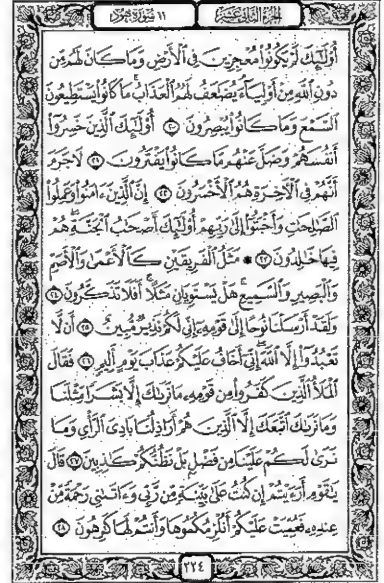 الجزء الثاني عشر
١١ سورة هود
أُوْلَٰٓئِكَ لَمْ يَكُونُوا۟ مُعْجِزِينَ فِى ٱلْأَرْضِ وَمَا كَانَ لَهُم مِّن
دُونِ ٱللَّهِ مِنْ أَوْلِيَآءَ يُضَٰعَفُ لَهُمُ ٱلْعَذَابُ مَا كَانُوا۟ يَسْتَطِيعُونَ
ٱلسَّمْعَ وَمَا كَانُوا۟ يُبْصِرُونَ ٢٠ أُوْلَٰٓئِكَ ٱلَّذِينَ خَسِرُوٓا۟
أَنفُسَهُمْ وَضَلَّ عَنْهُم مَّا كَانُوا۟ يَفْتَرُونَ ٢١ لَا جَرَمَ
أَنَّهُمْ فِى ٱلْءَاخِرَةِ هُمُ ٱلْأَخْسَرُونَ ٢٢ إِنَّ ٱلَّذِينَ ءَامَنُوا۟ وَعَمِلُوا۟
ٱلصَّٰلِحَٰتِ وَأَخْبَتُوٓا۟ إِلَىٰ رَبِّهِمْ أُوْلَٰٓئِكَ أَصْحَٰبُ ٱلْجَنَّةِ هُمْ
فِيهَا خَٰلِدُونَ ٢٣ ۞ مَثَلُ ٱلْفَرِيقَيْنِ كَٱلْأَعْمَىٰ وَٱلْأَصَمِّ
وَٱلْبَصِيرِ وَٱلسَّمِيعِ هَلْ يَسْتَوِيَانِ مَثَلًا أَفَلَا تَذَكَّرُونَ ٢٤
وَلَقَدْ أَرْسَلْنَا نُوحًا إِلَىٰ قَوْمِهِۦٓ إِنِّى لَكُمْ نَذِيرٌ مُّبِينٌ ٢٥ أَن لَّا
تَعْبُدُوٓا۟ إِلَّا ٱللَّهَ إِنِّىٓ أَخَافُ عَلَيْكُمْ عَذَابَ يَوْمٍ أَلِيمٍ ٢٦ فَقَالَ
ٱلْمَلَأُ ٱلَّذِينَ كَفَرُوا۟ مِن قَوْمِهِۦ مَا نَرَىٰكَ إِلَّا بَشَرًا مِّثْلَنَا
وَمَا نَرَىٰكَ ٱتَّبَعَكَ إِلَّا ٱلَّذِينَ هُمْ أَرَاذِلُنَا بَادِىَ ٱلرَّأْىِ وَمَا
نَرَىٰ لَكُمْ عَلَيْنَا مِن فَضْلٍۭ بَلْ نَظُنُّكُمْ كَٰذِبِينَ ٢٧ قَالَ
يَٰقَوْمِ أَرَءَيْتُمْ إِن كُنتُ عَلَىٰ بَيِّنَةٍ مِّن رَّبِّى وَءَاتَىٰنِى رَحْمَةً مِّنْ
عِندِهِۦ فَعُمِّيَتْ عَلَيْكُمْ أَنُلْزِمُكُمُوهَا وَأَنتُمْ لَهَا كَٰرِهُونَ ٢٨
٢٢٤